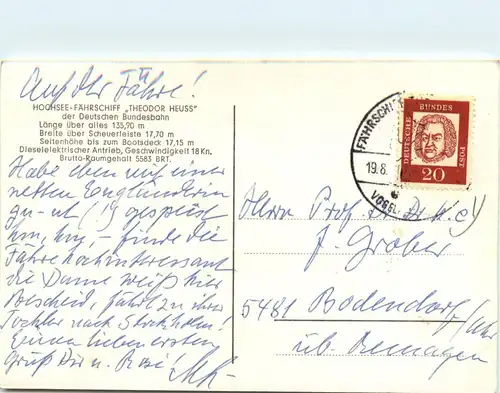 Auf der Fähre!
HOCHSEE-FÄHRSCHIFF „THEODOR HEUSS"
der Deutschen Bundesbahn
Länge über alles 135,90 m
Breite über Scheuerleiste 17,70 m
Seitenhöhe bis zum Bootsdeck 17,15 m
Dieselelektrischer Antrieb, Geschwindigkeit 18 Kn.
Brutto-Raumgehalt 5583 BRT.
Habe eben mit einer
netten Engländerin
gespeist
hm, hm, – finde die
Fähre hochinteressant
die Dame weiß hier
Bescheid, fährt zu ihrer
Tochter nach Stockholm!
Einen lieben ersten
Gruß Dir u. Rosi!
FÄHRSCHIFF
19.8.
VOGEL
DEUTSCHE
BUNDES
POST
20
Herrn Prof. Dr. Dr. h. c.
J. Grober
5481 Bodendorf/Ahr
üb. Remagen